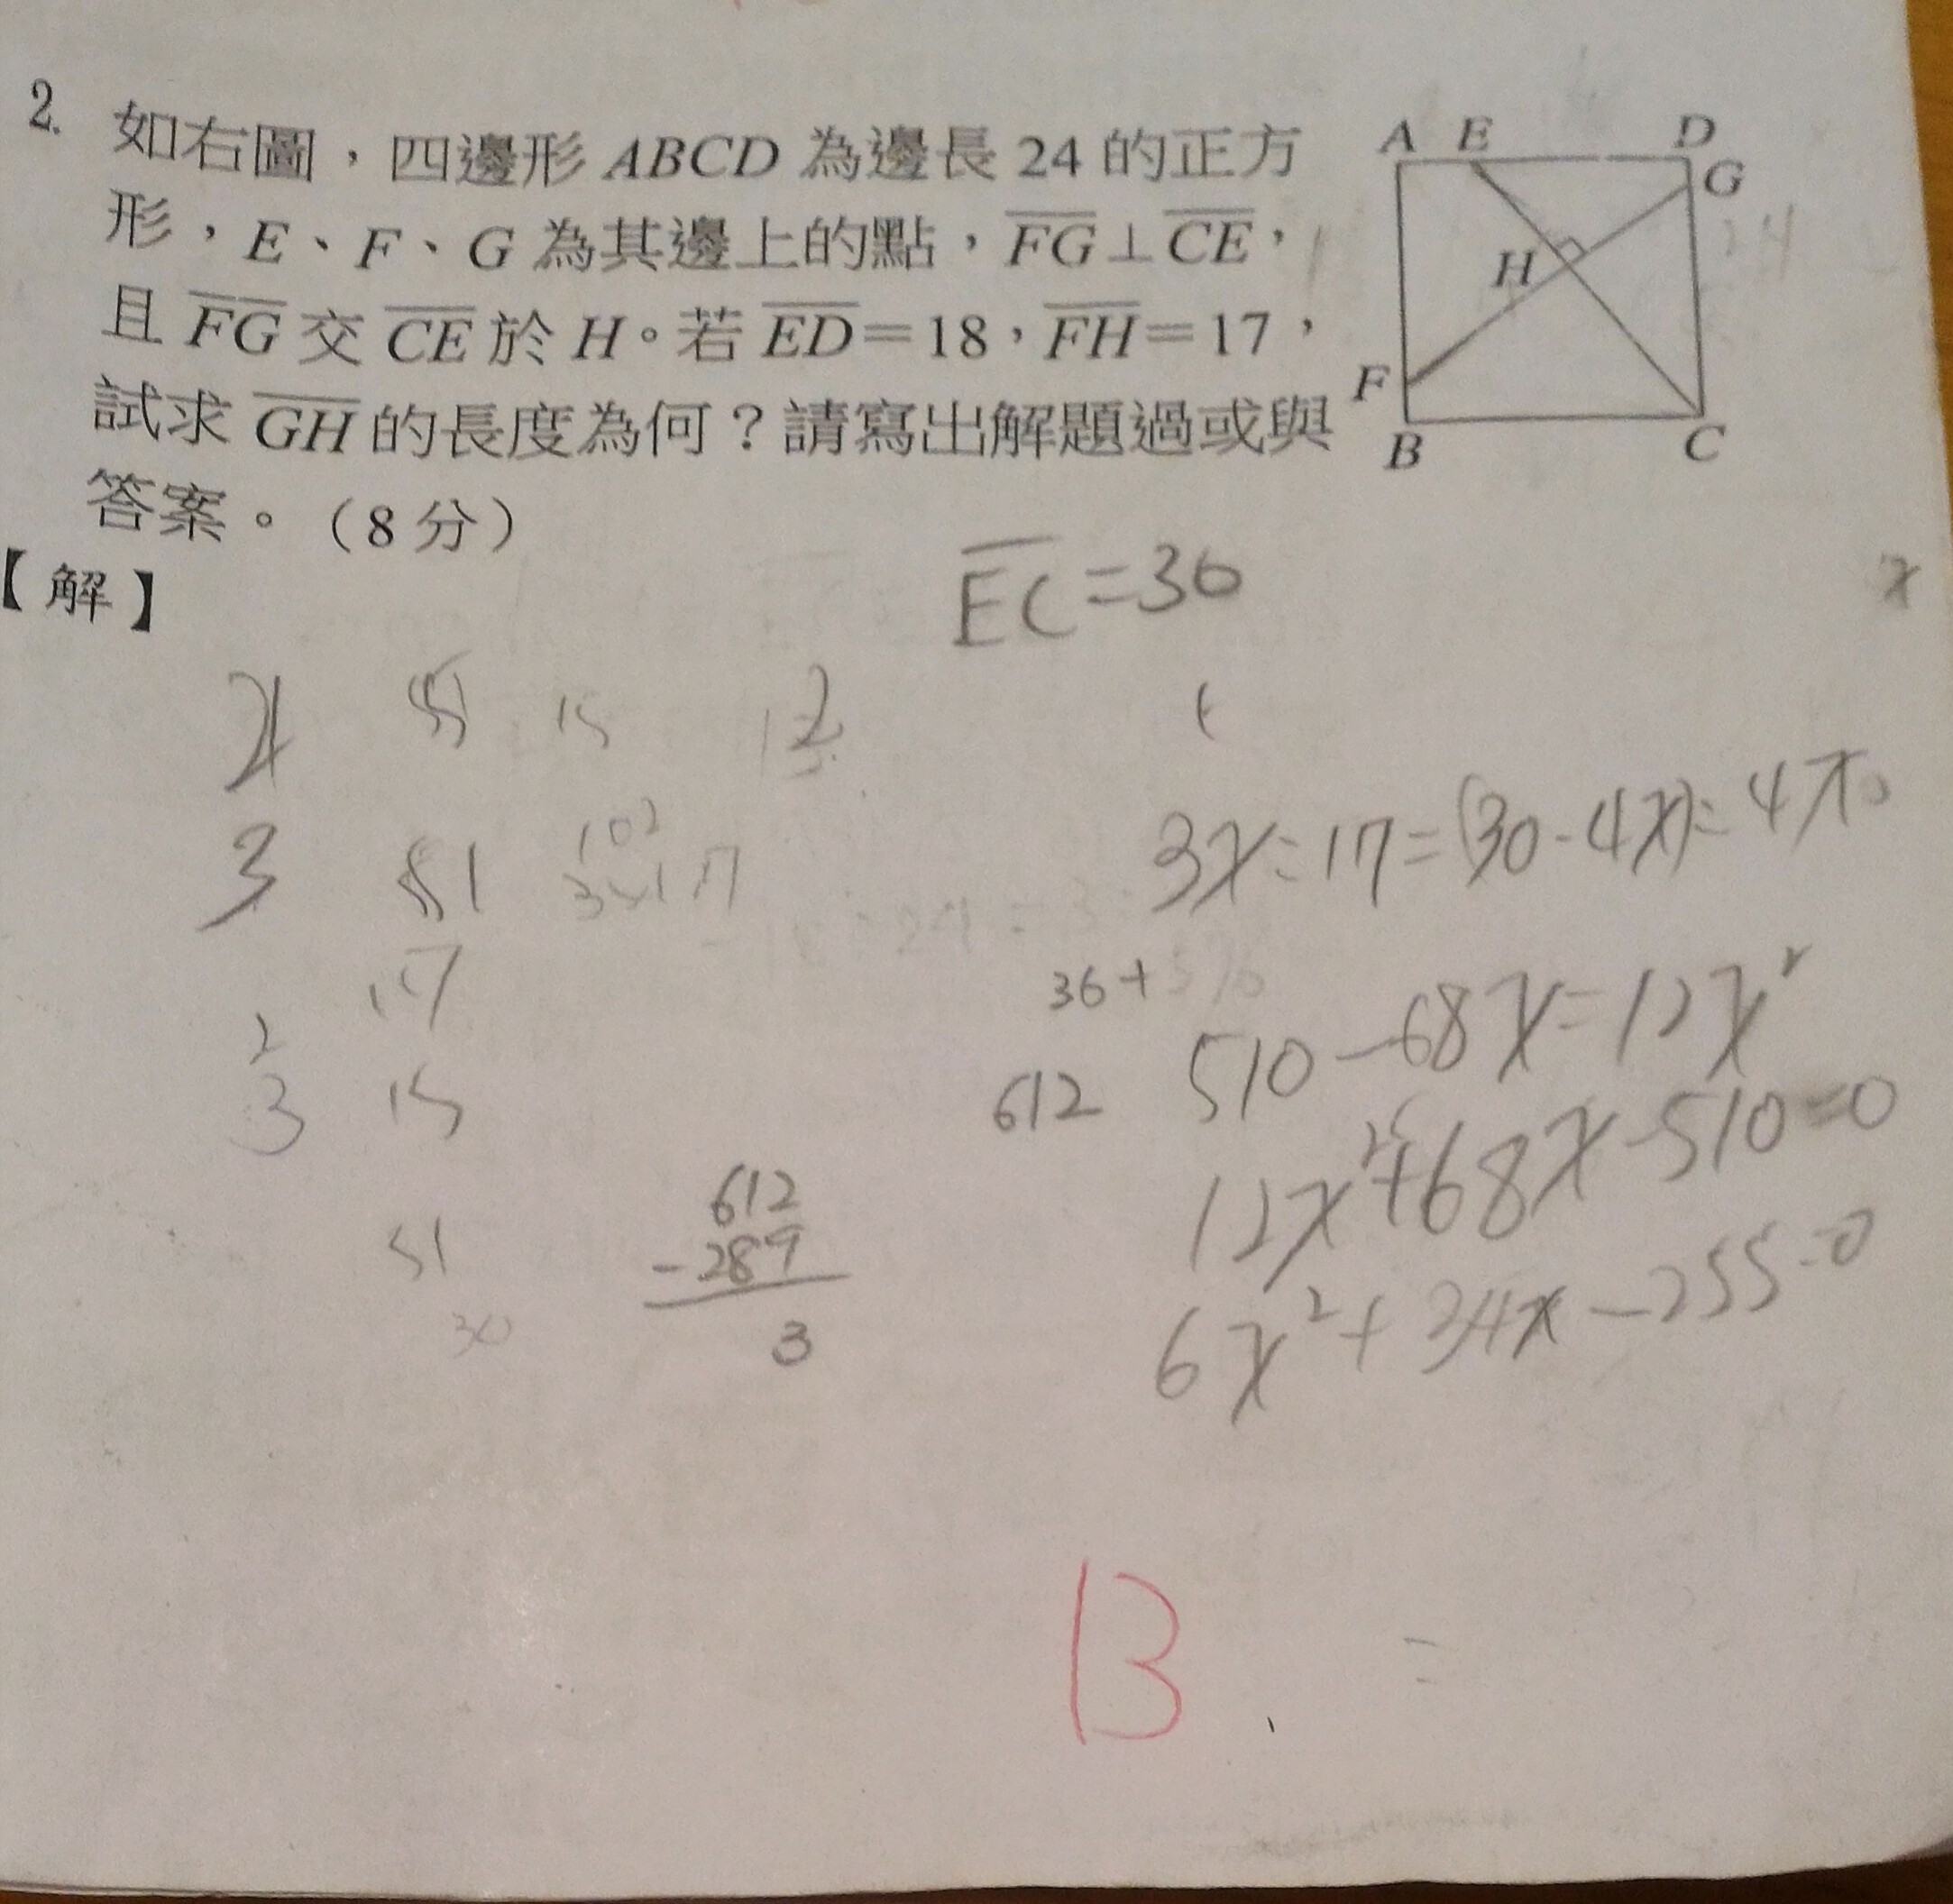 2. 如右圖，四邊形 ABCD 為邊長 24 的正方
形，E、F、G 為其邊上的點，FG⊥CE，
且 FG 交 CE 於 H。若 ED＝18，FH＝17，
試求 GH 的長度為何？請寫出解題過或與
答案。（8 分）
A E D
G
H
F
B C
【解】
EC=30
x
15
12
3x:17=(30-4x):4x
3
81
102
17
36+576
510-68x=12x²
2
3
15
612
12x²+68x-510=0
612
-289
3
51
30
6x²+34x-255=0
13
=